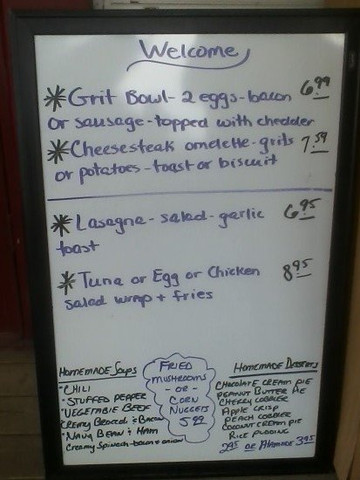 Welcome
*Grit Bowl- 2 eggs- bacon 6.99
or sausage- topped with chedder
*Cheesesteak omelette- grits 7.59
or potatoes- toast or biscuit
*Lasagna- salad- garlic 6.95
toast
*Tuna or Egg or Chicken 8.95
salad wrap + fries
Homemade Soups
• Chili
• Stuffed Pepper
• Vegetable Beef
Creamy Broccoli & Bacon
• Navy Bean & Ham
Creamy Spinach- bacon & onion
Fried
Mushrooms
- or -
Corn
Nuggets
5.99
Homemade Desserts
Chocolate Cream Pie
Peanut Butter Pie
Cherry Cobbler
Apple Crisp
Peach Cobbler
Coconut Cream Pie
Rice Pudding
2.95 or Alamode 3.95